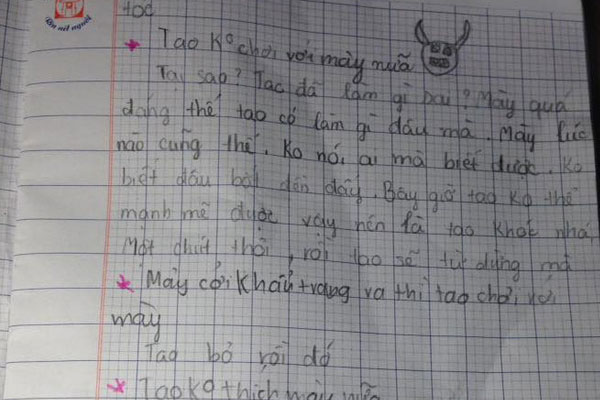 tóc
Nét nết người
* Tao ko chơi với mày nữa
Tại sao? Tao đã làm gì sai? Mày quá
đáng thế tao có làm gì đâu mà. Mày lúc
nào cũng thế. Ko nói ai mà biết được. Ko
biết đâu bắt đền đấy. Bây giờ tao ko thể
mạnh mẽ được vậy nên là tao khóc nhá.
Một chút thôi, rồi tao sẽ tự dừng mà
* Mày cởi khẩu trang ra thì tao chơi với
mày
Tao bỏ rồi đó
* Tao ko thích mày nữa